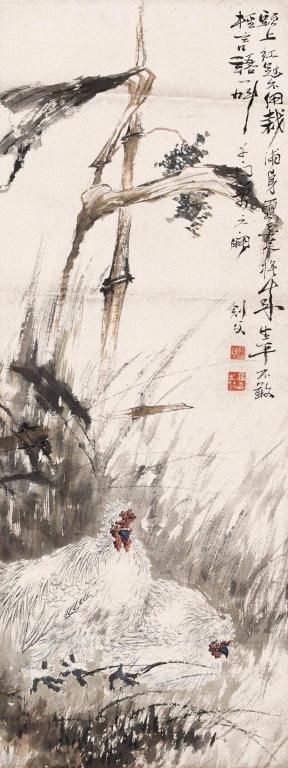 頭上紅冠不用裁滿身雪白走將來生平不敢
輕言語一叫千門萬户開
劍父